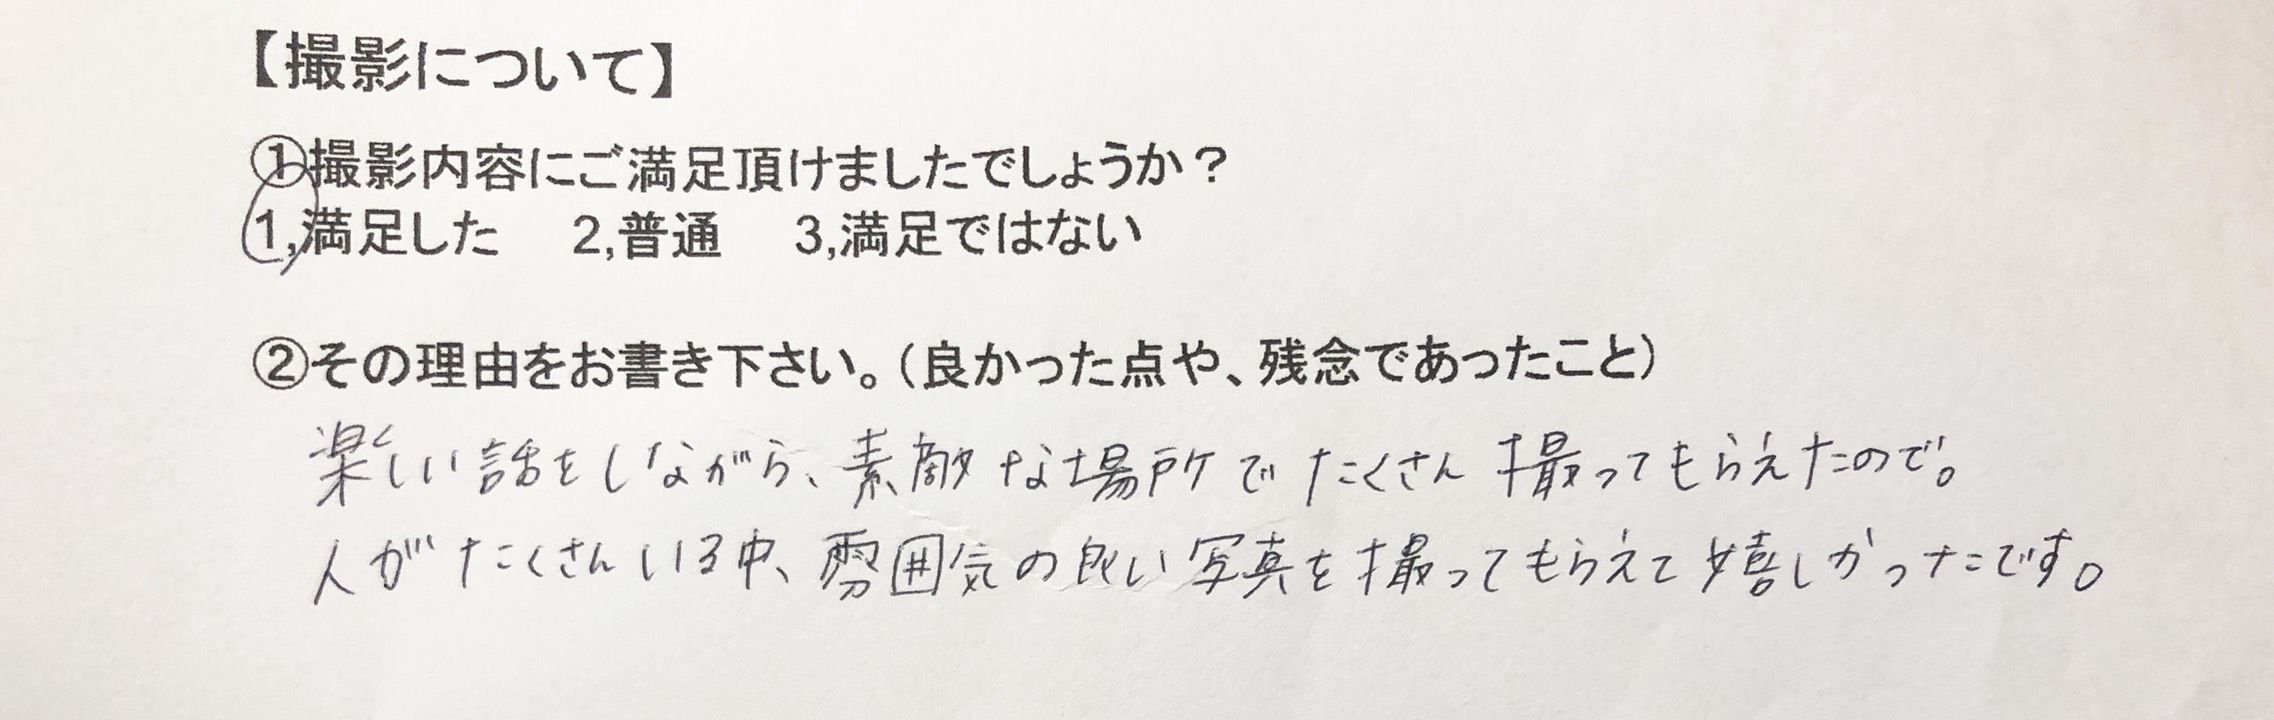 【撮影について】
①撮影内容にご満足頂けましたでしょうか？
1,満足した　2,普通　3,満足ではない
②その理由をお書き下さい。（良かった点や、残念であったこと）
楽しい話をしながら、素敵な場所でたくさん撮ってもらえたので。
人がたくさんいる中、雰囲気の良い写真を撮ってもらえて嬉しかったです。